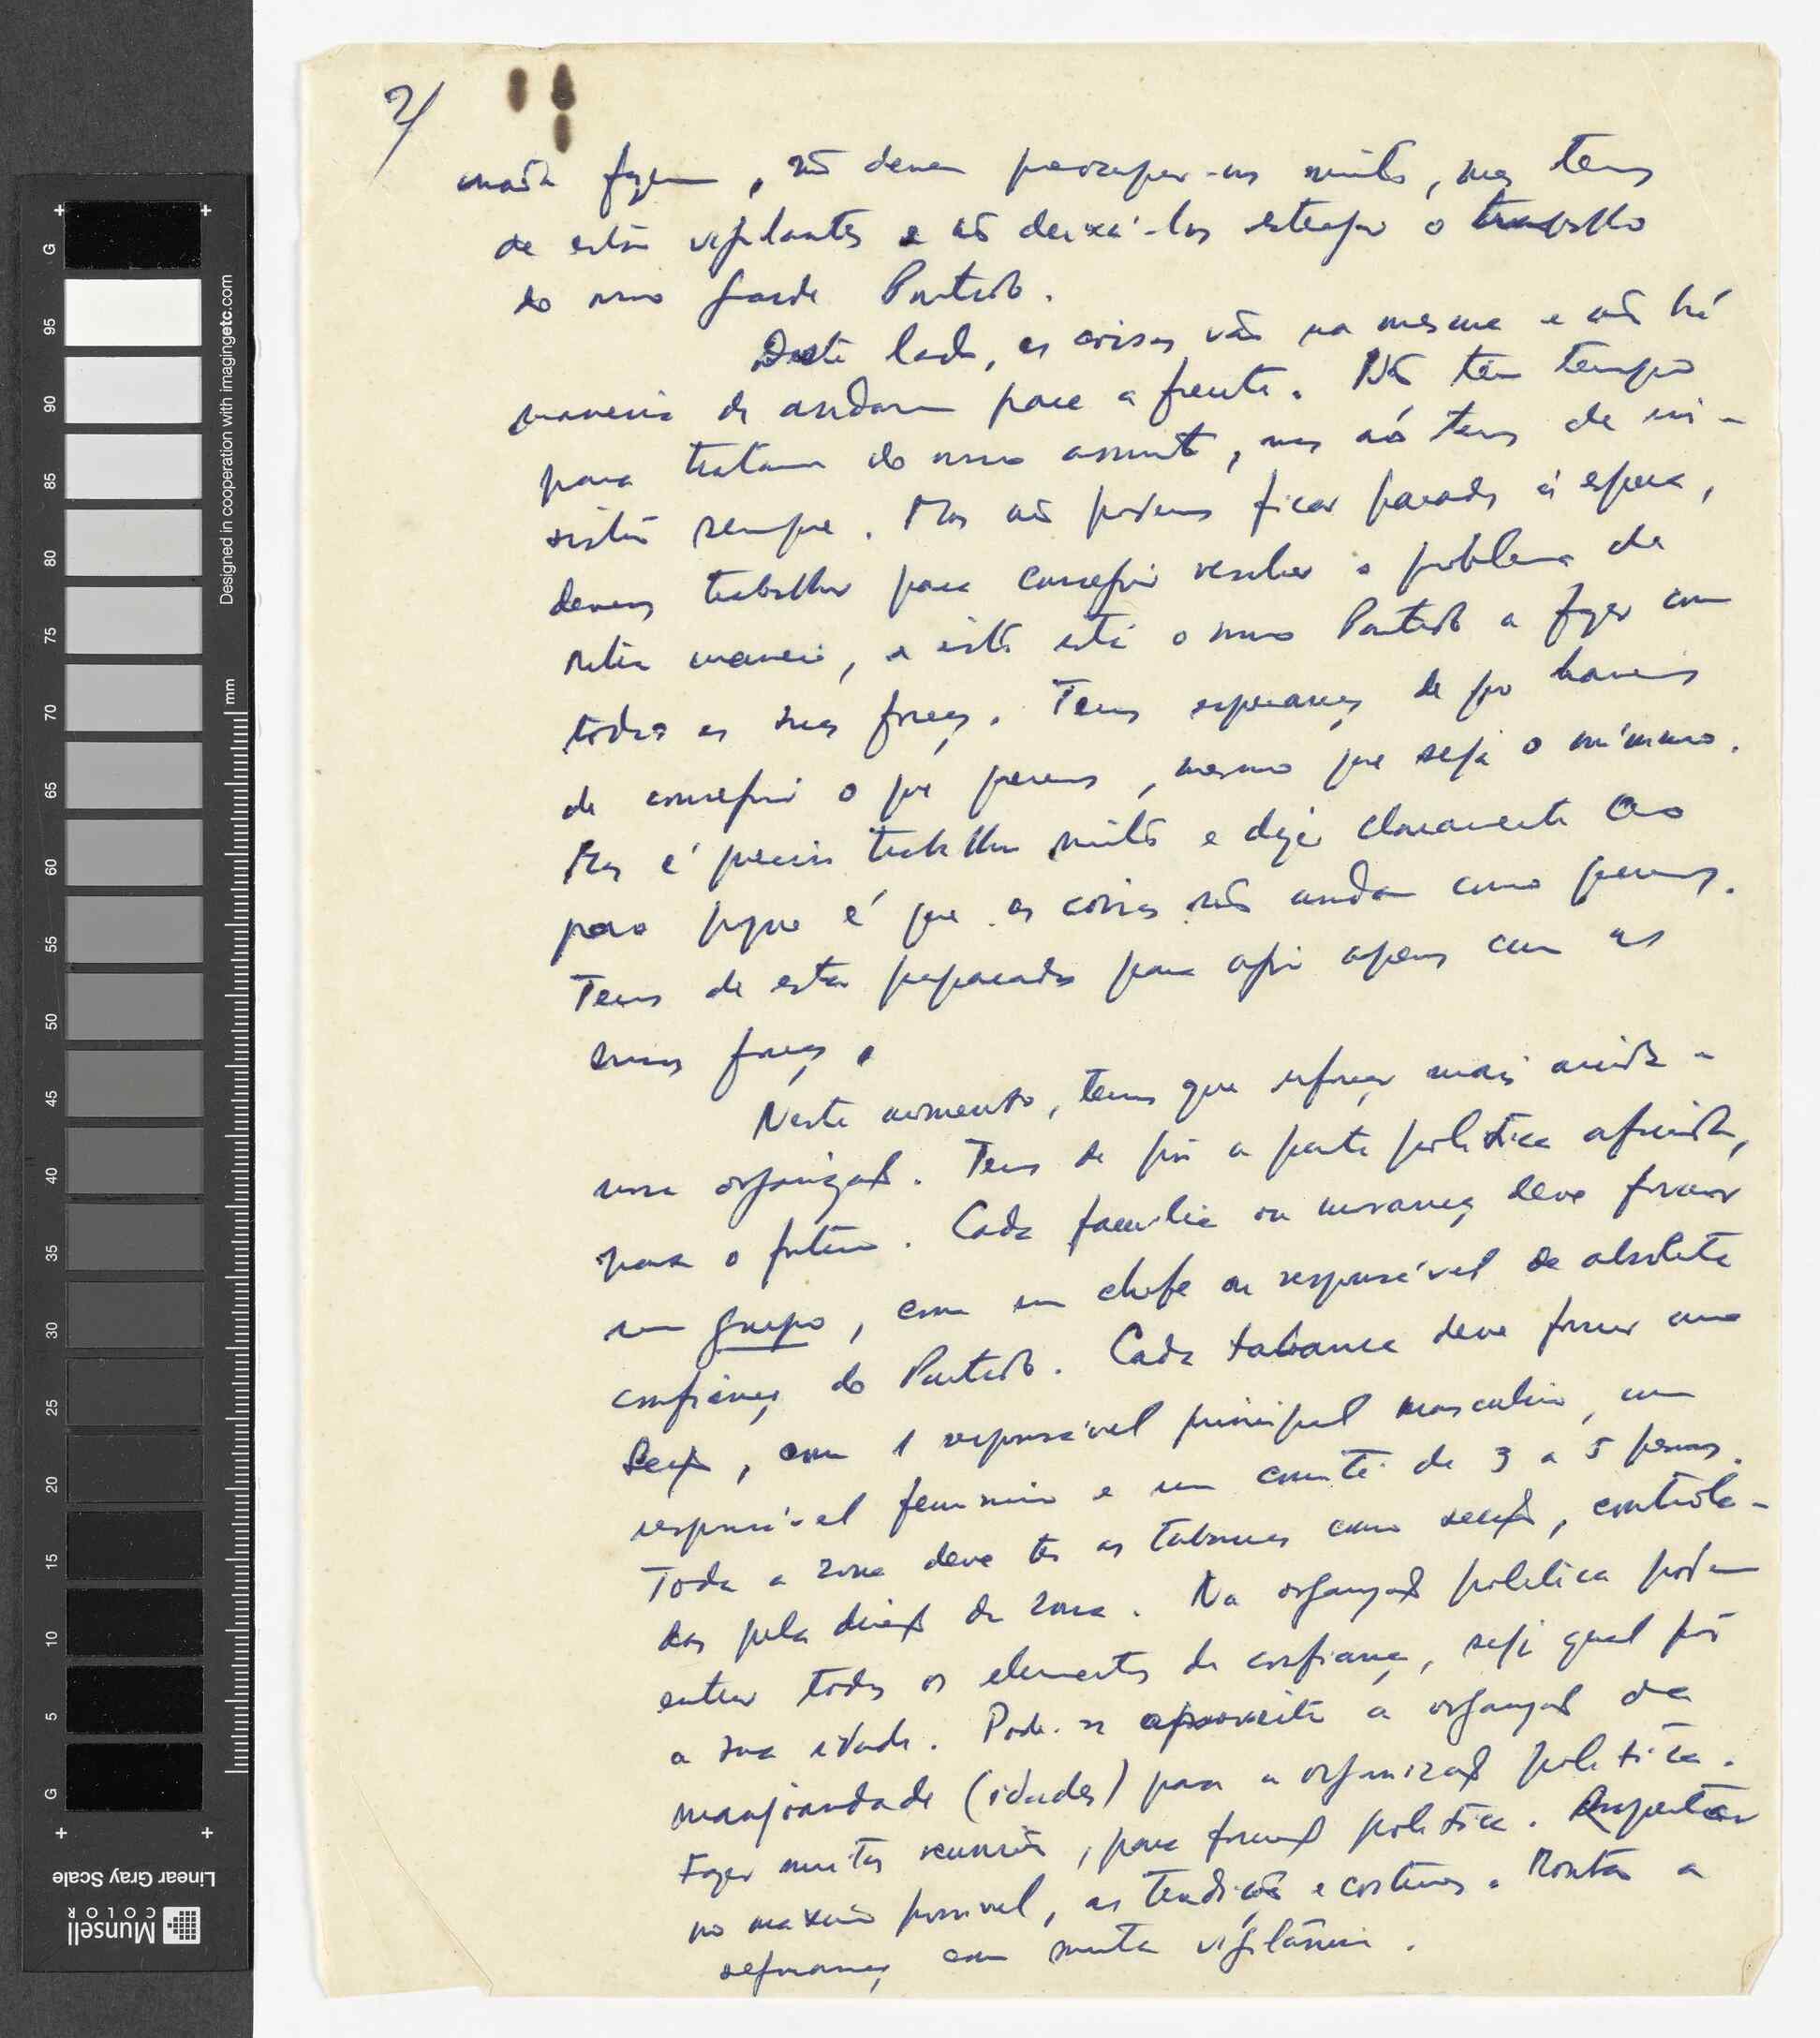 2/
nada fazem, não devem preocupar-nos muito, mas temos
de estar vigilantes e não deixá-los estragar o trabalho
do nosso grande Partido.
Deste lado, as coisas vão na mesma e não há
maneira de andarem para a frente. Não têm tempo
para tratarem do nosso assunto, mas nós temos de in-
sistir sempre. Mas não podemos ficar parados à espera,
devemos trabalhar para conseguir resolver o problema de
outra maneira, e isto está o nosso Partido a fazer com
todas as suas forças. Temos esperanças de que havemos
de conseguir o que queremos, mesmo que seja o mínimo.
Mas é preciso trabalhar muito e dizer claramente ao
povo porque é que as coisas não andam como queremos.
Temos de estar preparados para agir apenas com as
nossas forças.
Neste momento, temos que reforçar mais ainda a
nossa organização. Temos de pôr a parte política afinada,
para o futuro. Cada família ou morança deve formar
um grupo, com um chefe ou responsável de absoluta
confiança do Partido. Cada tabanca deve formar uma
Secção, com 1 responsável principal masculino, um
responsável feminino e um comité de 3 a 5 pessoas.
Toda a zona deve ter as tabancas como secção, controla-
das pela direcção da zona. Na organização política podem
entrar todos os elementos de confiança, seja qual fôr
a sua idade. Pode-se aproveitar a organização da
manjuandade (idades) para a organização política.
Fazer muitas reuniões, para formação política. Respeitar
no máximo possível, as tradições e costumes. Montar a
segurança com muita vigilância.
G
95
90
85
80
75
70
65
60
55
50
45
40
35
30
25
20
15
10
5
G
mm
Designed in cooperation with imagingetc.com
Linear Gray Scale
Munsell
COLOR